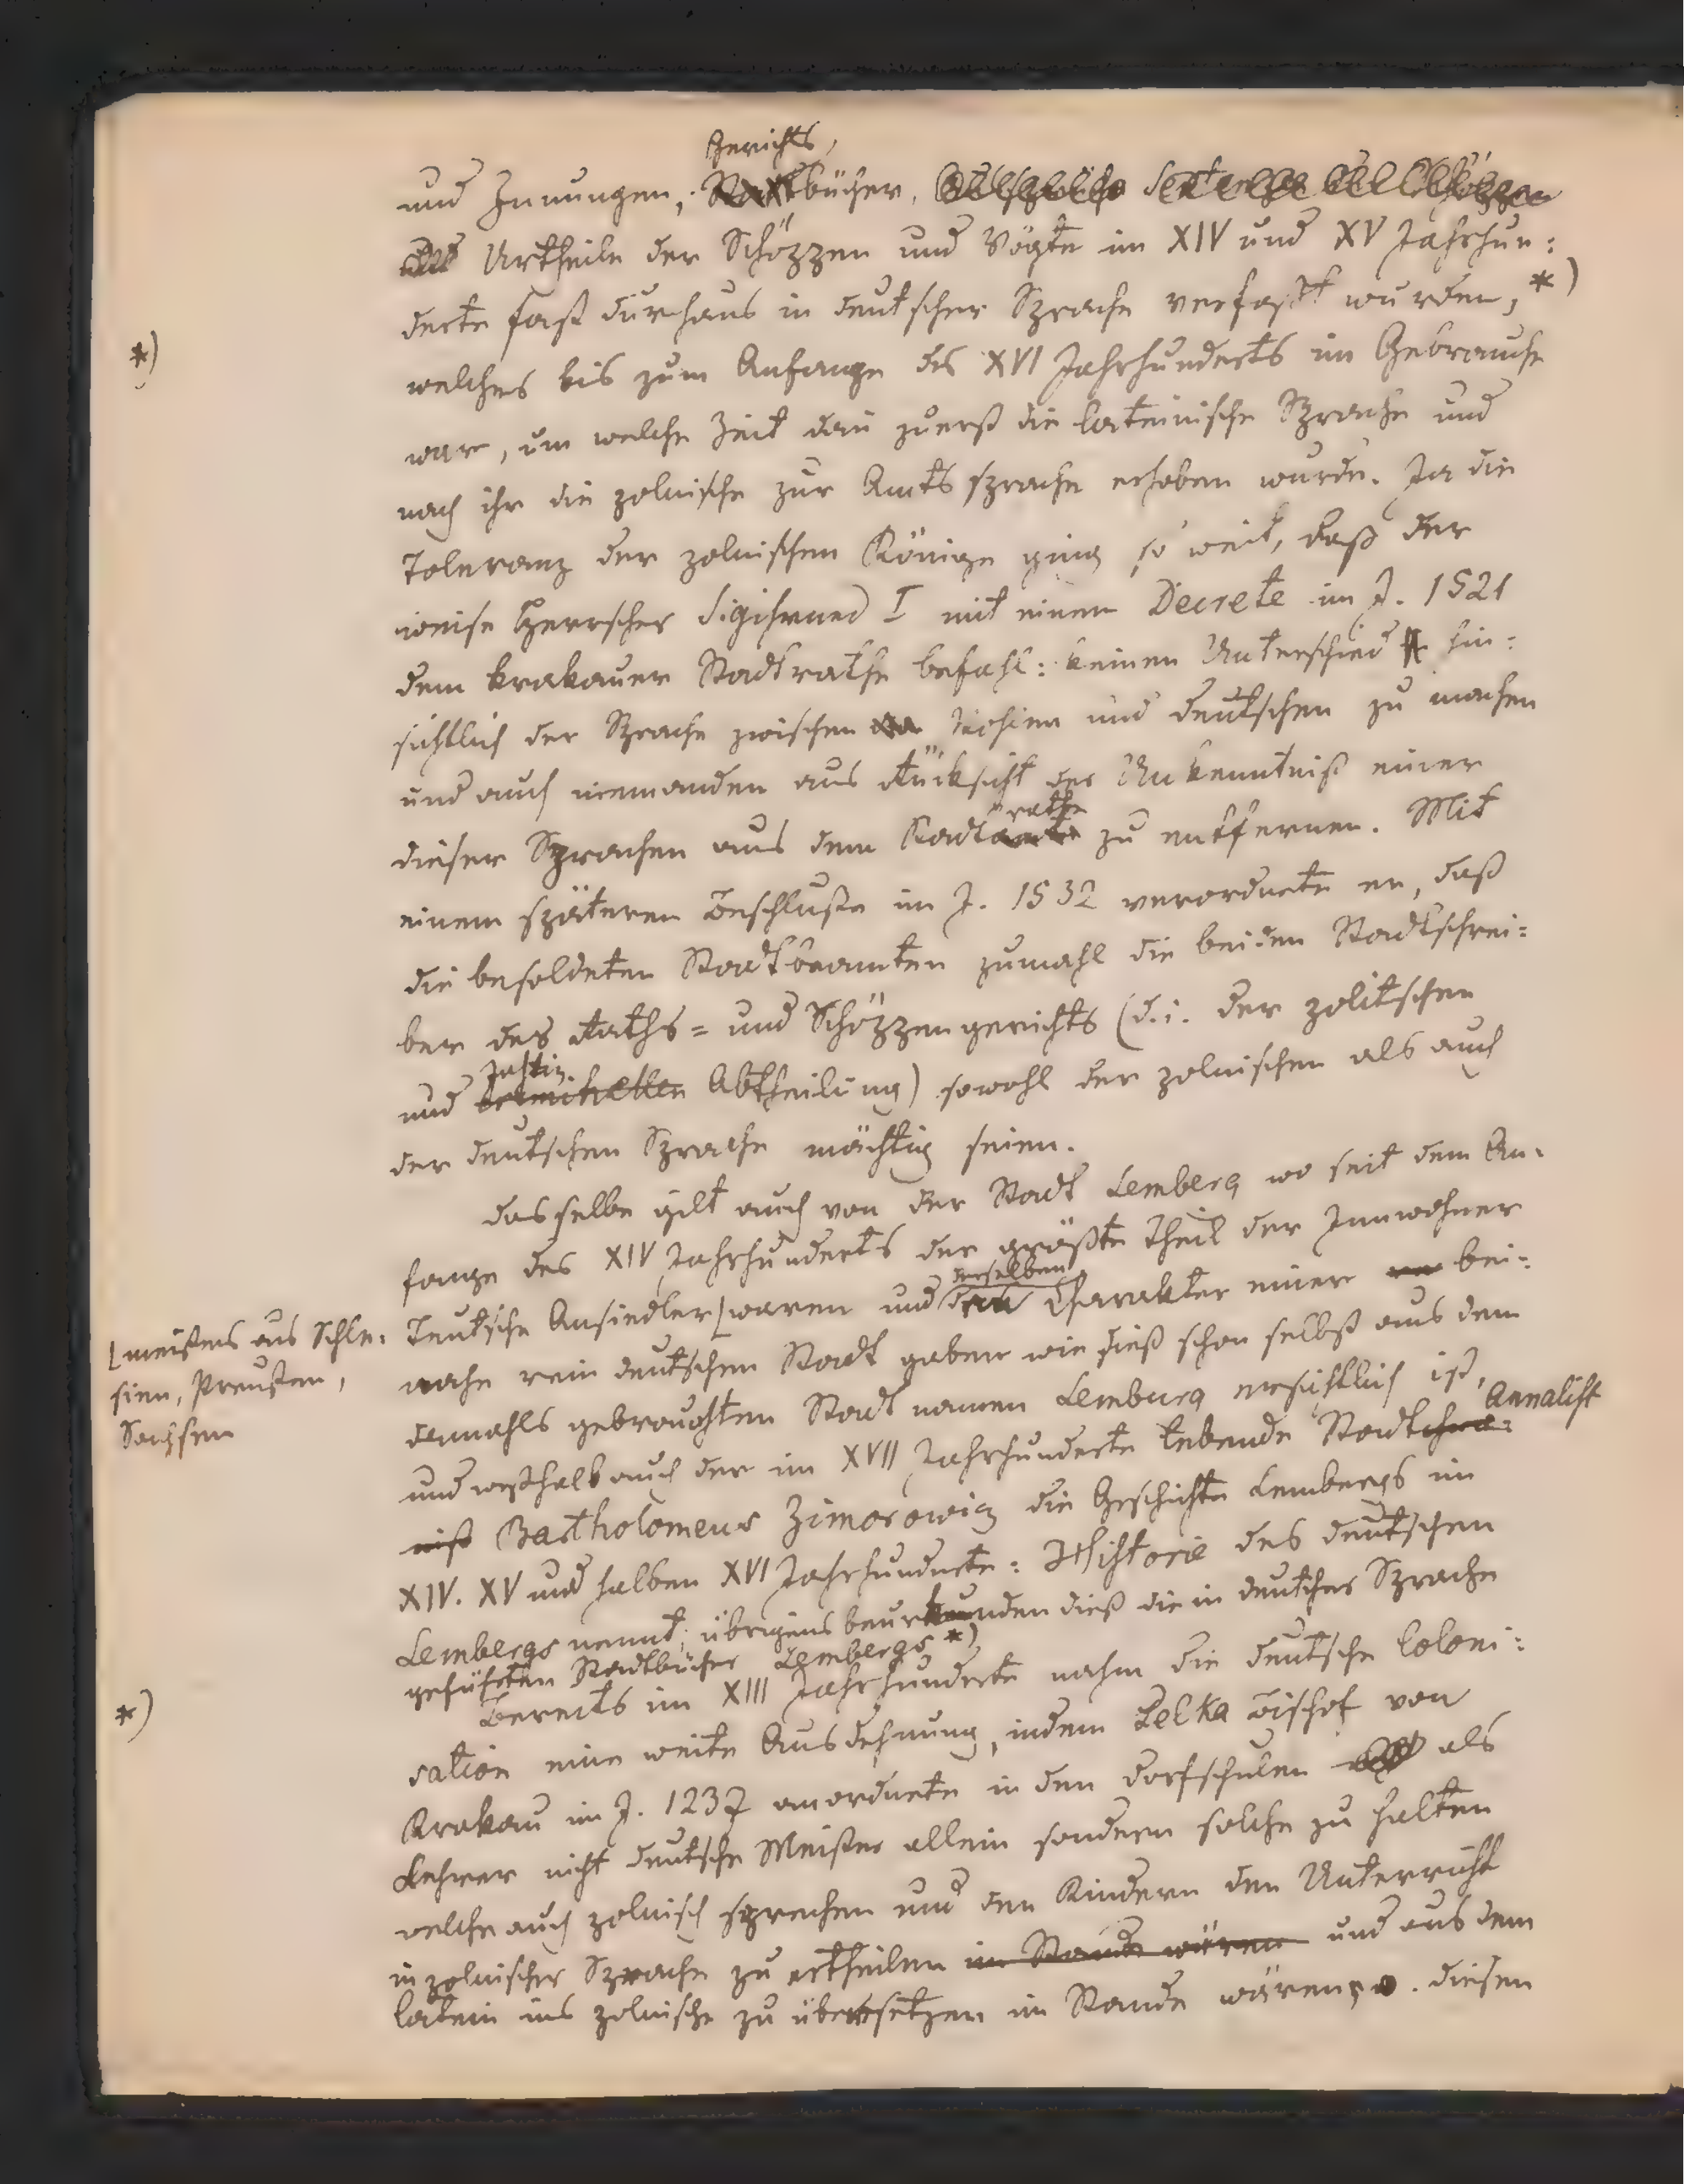 Gerichts,
und Innungen, Stadtbücher,
und Urtheile der Schöppen und Vögte im XIV und XV Jahrhun:
derte fast durchaus in deutscher Sprache verfaßt wurden, *)
*)
welches bis zum Anfange des XVI Jahrhunderts im Gebrauche
war, um welche Zeit dan zuerst die lateinische Sprache und
nach ihr die polnische zur Amtssprache erhoben wurde. Ja die
Toleranz der polnischen Könige ging so weit, daß der
weise Herrscher Sigismund I mit einem Decrete im J. 1521
dem krakauer Stadtrathe befahl: keinen Unterschied hin:
sichtlich der Sprache zwischen Pohlen und deutschen zu machen
und auch niemanden aus Rücksicht der Unkenntniß einer
rathe
dieser Sprachen aus dem Stadtamte zu entfernen. Mit
einem späteren Beschluße im J. 1532 verordnete er, daß
die besoldeten Stadtbeamten zumahl die beiden Stadtschrei:
ber des Raths= und Schöppengerichts (d.i. der politschen
Justiz
und Abtheilung) sowohl der polnischen als auch
der deutschen Sprache mächtig seien.
dasselbe gilt auch von der Stadt Lemberg wo seit dem An:
fange des XIV Jahrhunderts der größte Theil der Innwohner
derselben
Teutsche Ansiedler [waren und den Charakter einer bei:
[meistens aus Schle:
sien, Preußen,
Sachsen
nahe rein deutschen Stadt gaben wie dieß schon selbst aus dem
damahls gebrauchten Stadt namen Lemburg ersichtlich ist,
Annalist
und weßhalb auch der im XVII Jahrhunderte lebende Stadtchro:
nist Bartholomeus Zimorowicz die Geschichte Lembergs im
XIV. XV und halben XVI Jahrhunderte: Historie des deutschen
Lembergs nennt; übrigens beurkunden dieß die in deutscher Sprache
geführten Stadtbücher Lembergs *)
*)
Bereits im XIII Jahrhunderte nahm die deutsche Coloni:
sation eine weite Ausdehnung, indem Pelka Bischof von
Krakau im J. 1237 anordnete in den Dorfschulen als
Lehrer nicht deutsche Meister allein sondern solche zu halten
welche auch polnisch sprechen und den Kindern den Unterricht
in polnischer Sprache zu ertheilen im Stande wären und aus dem
latein ins polnische zu übersetzen im Stande wären. diesen